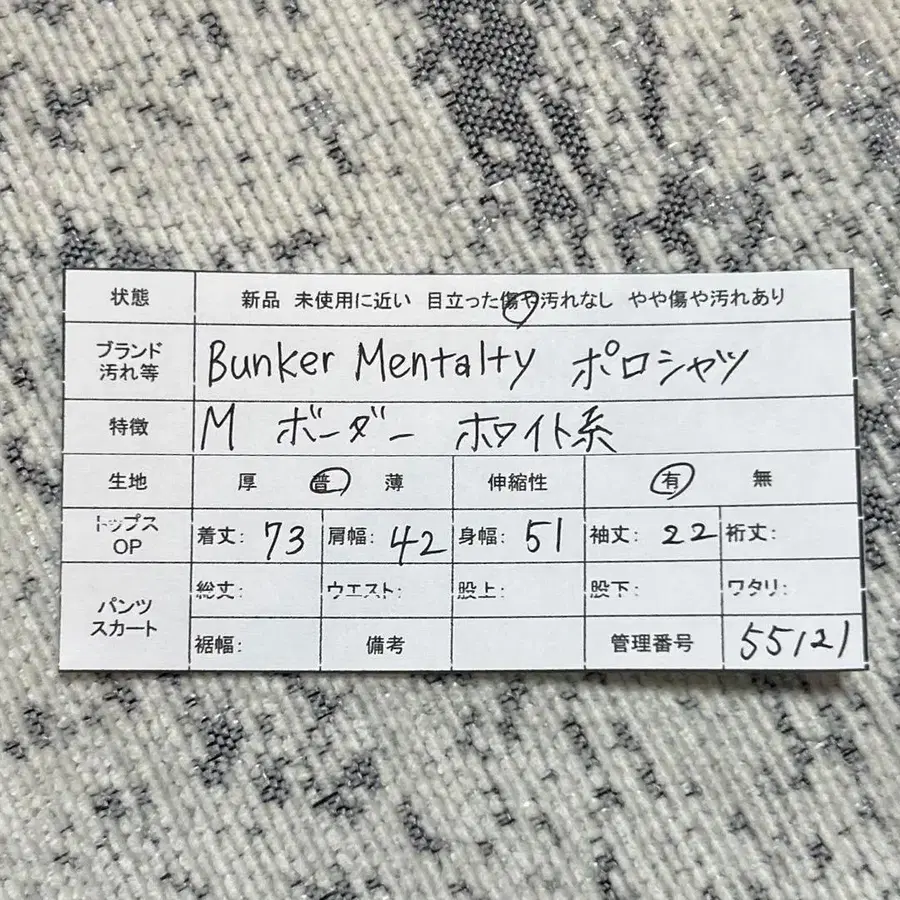 状態 新品 未使用に近い 目立った傷や汚れなし やや傷や汚れあり
ブランド
汚れ等
Bunker Mentalty ポロシャツ
特徴 M ボーダー ホワイト系
生地 厚 普 薄 伸縮性 有 無
トップス
OP
着丈: 73 肩幅: 42 身幅: 51 袖丈: 22 裄丈:
パンツ
スカート
総丈: ウエスト: 股上: 股下: ワタリ:
裾幅: 備考 管理番号 55121